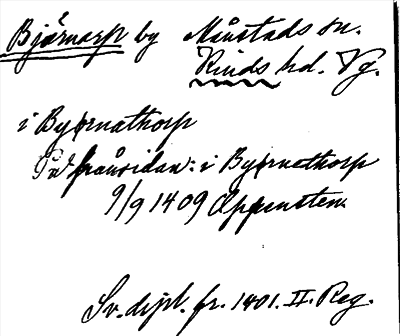 Bjärnarp by Månstads sn.
Kinds hd. Vg.
i Byørnathorp
På frånsidan: i Byørnethorp
9/9 1409 Oppensten
Sv. dipl. fr. 1401. II. Reg.